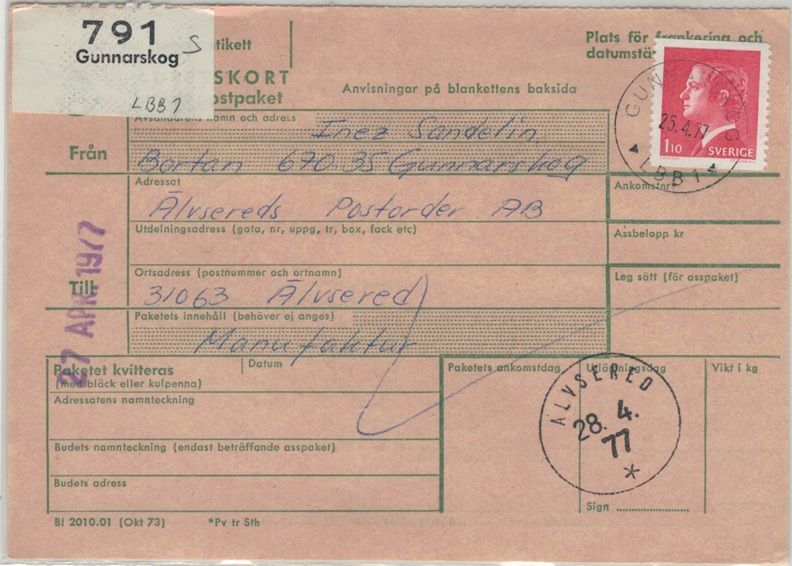 791
Gunnarskog
S
LBB1
etikett
SKORT
ostpaket
Anvisningar på blankettens baksida
Plats för frankering och
datumstä
GUN
25.4.77
LBB1
1.10 SVERIGE
Från
Avsändarens namn och adress
Inez Sandelin
Bortan 670 35 Gunnarskog
Adressat
Älvsereds Postorder AB
Ankomstnr
Utdelningsadress (gata, nr, uppg, tr, box, fack etc)
Assbelopp kr
Till
Ortsadress (postnummer och ortnamn)
31063 Älvsered
Leg sätt (för asspaket)
Paketets innehåll (behöver ej anges)
Manufaktur
27 APR 1977
Paketet kvitteras
(med bläck eller kulpenna)
Datum
Paketets ankomstdag
Utlöpningsdag
Vikt i kg
Adressatens namnteckning
ÄLVSERED
28. 4.
77
*
Budets namnteckning (endast beträffande asspaket)
Budets adress
Sign
Bl 2010.01 (Okt 73)
*Pv tr Sth